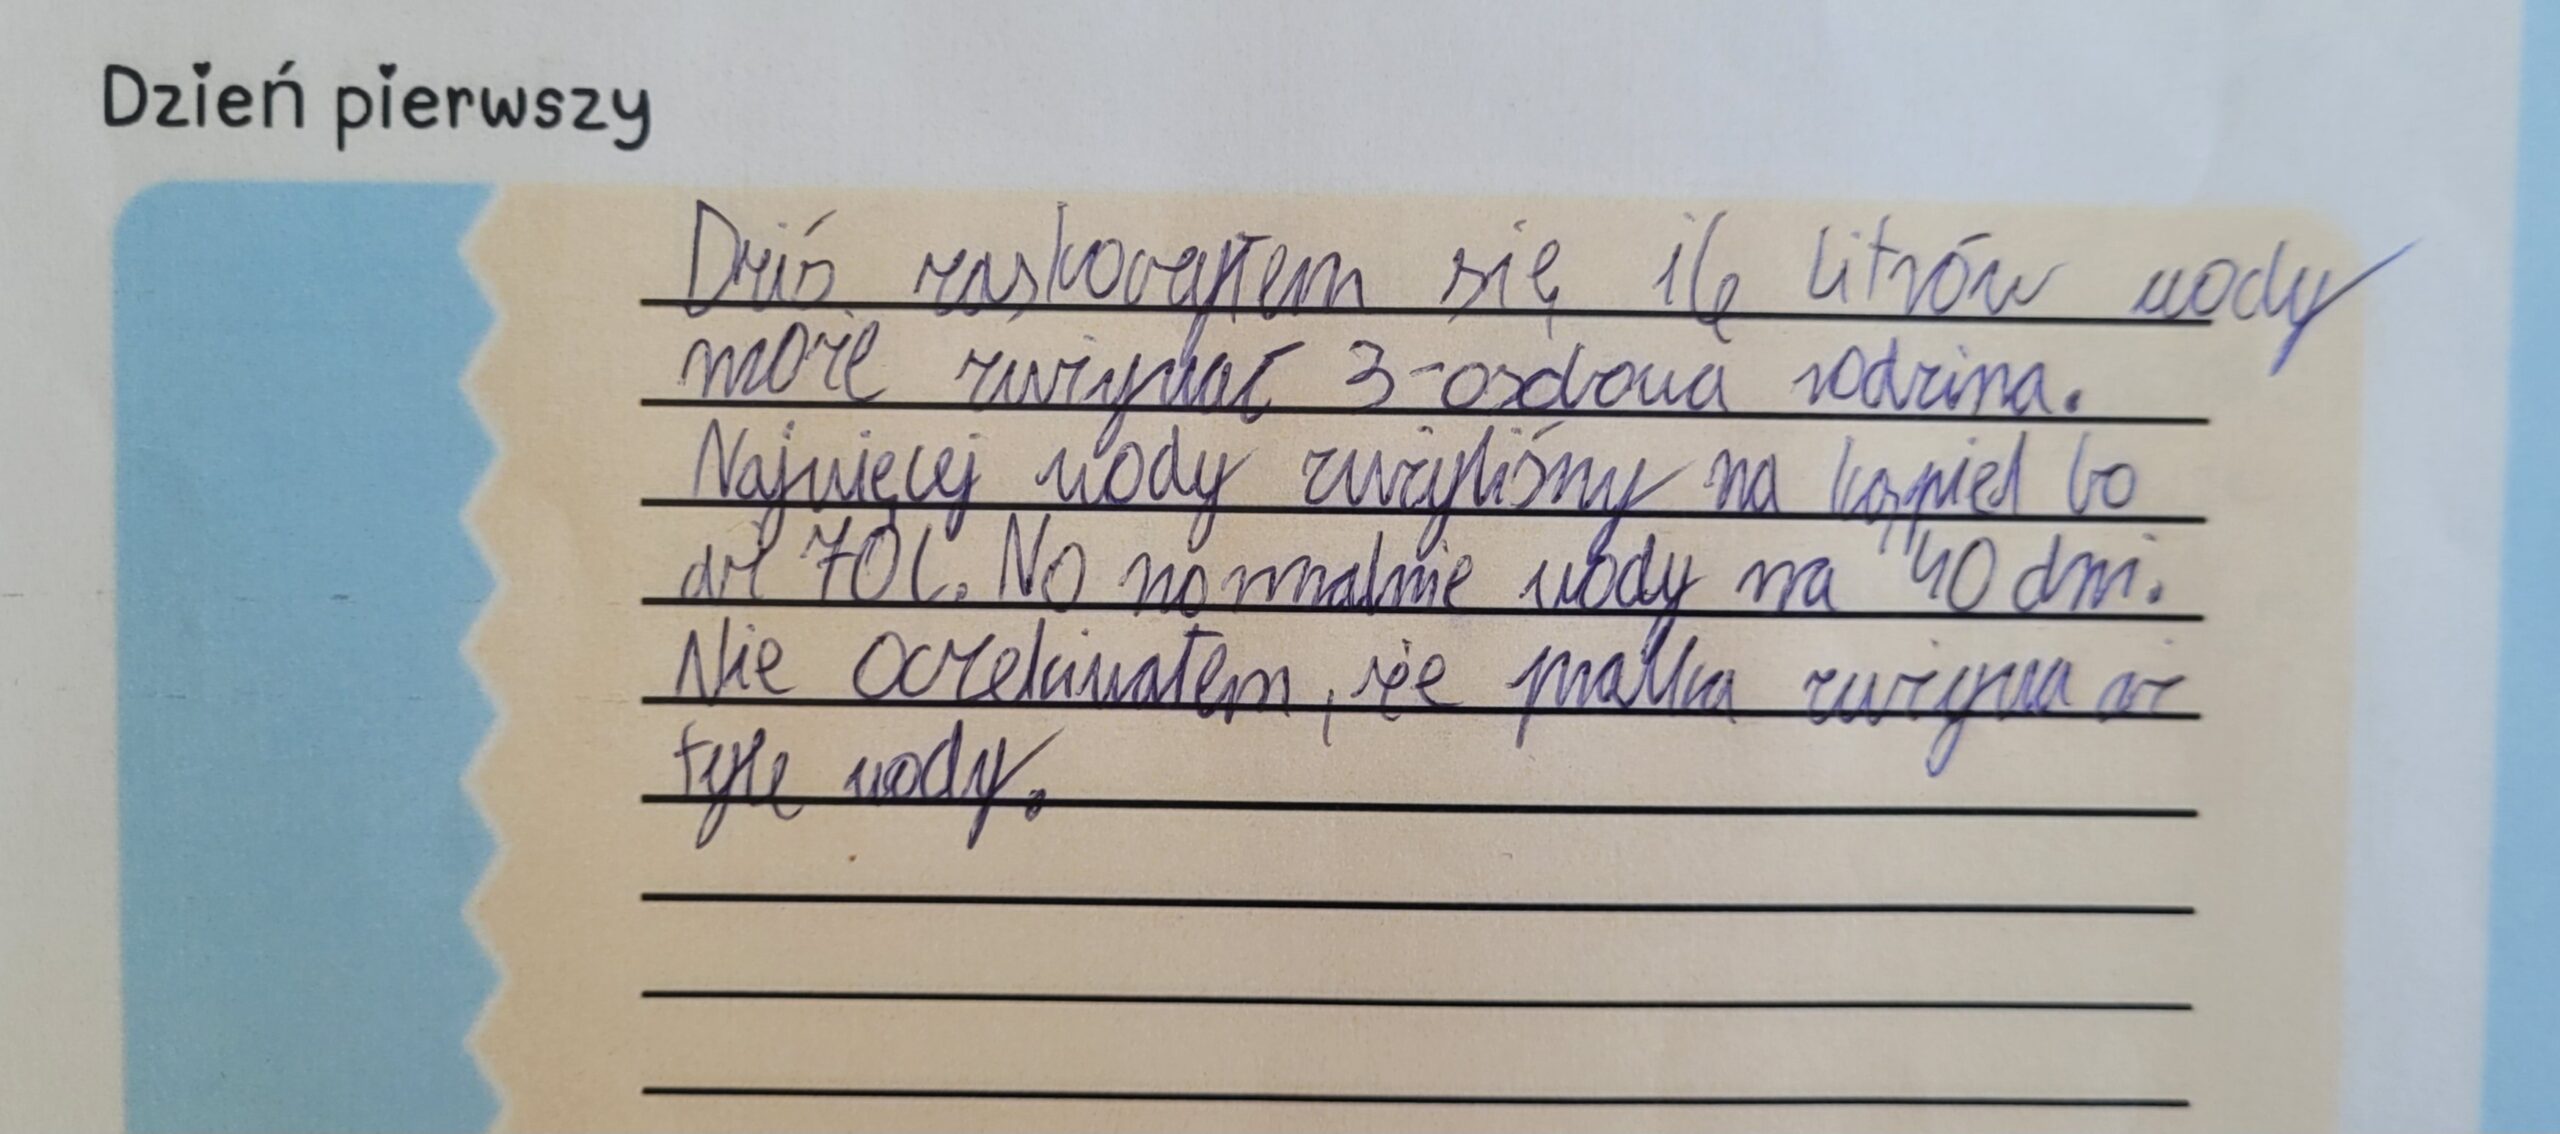 Dzień pierwszy
Dziś zaskoczyłem się ile litrów wody
może zużywać 3-osobowa rodzina.
Najwięcej wody zużyliśmy na kąpiel bo
aż 70l. No normalnie wody na 40 dni.
Nie oczekiwałem, że pralka zużywa aż
tyle wody.